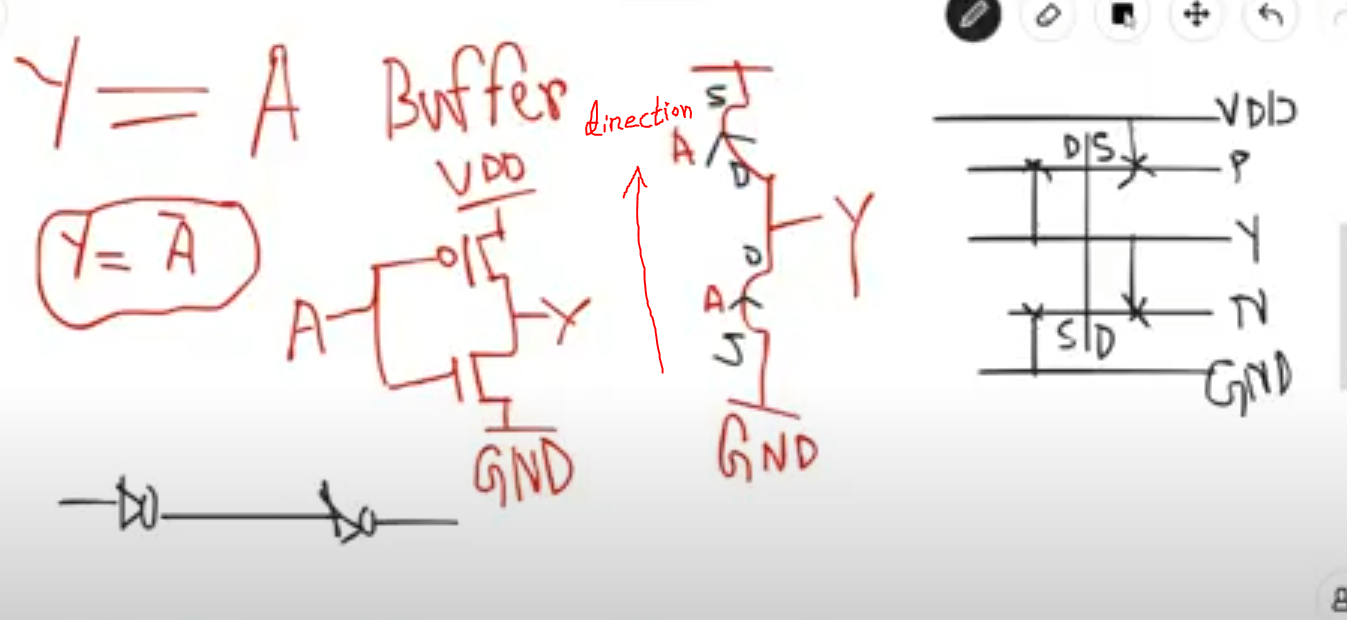 Y = A Buffer
Y = Ā
VDD
A
Y
GND
direction
S
A
D
Y
D
A
S
GND
VDD
D S
P
Y
N
S D
GND